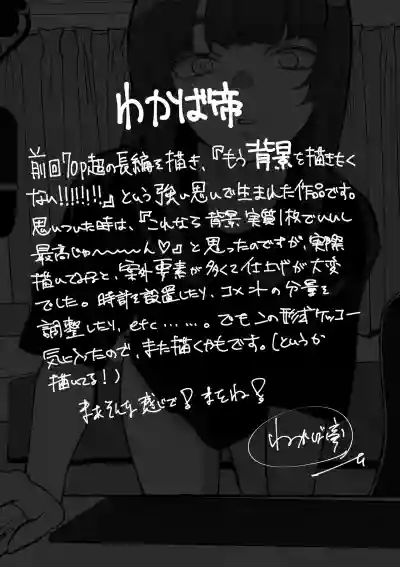 わかば帝
前回70p超の長編を描き、『もう背景を描きもく
ない!!!!!!!!』という強い思いで生まれた作品です。
思いついた時は、『これなら背景実質1枚でいいし
最高じゃ〜〜〜ん♡』と思ったのですが、実際
描いてみると、案外要素が多くて仕上げが大変
でした。時計を設置したり、コメントの分量を
調整したり、etc……。でもこの形式ケッコー
気に入ったので、また描くかもです。(というか
描いてる!)
まあそんな感じで! またね!